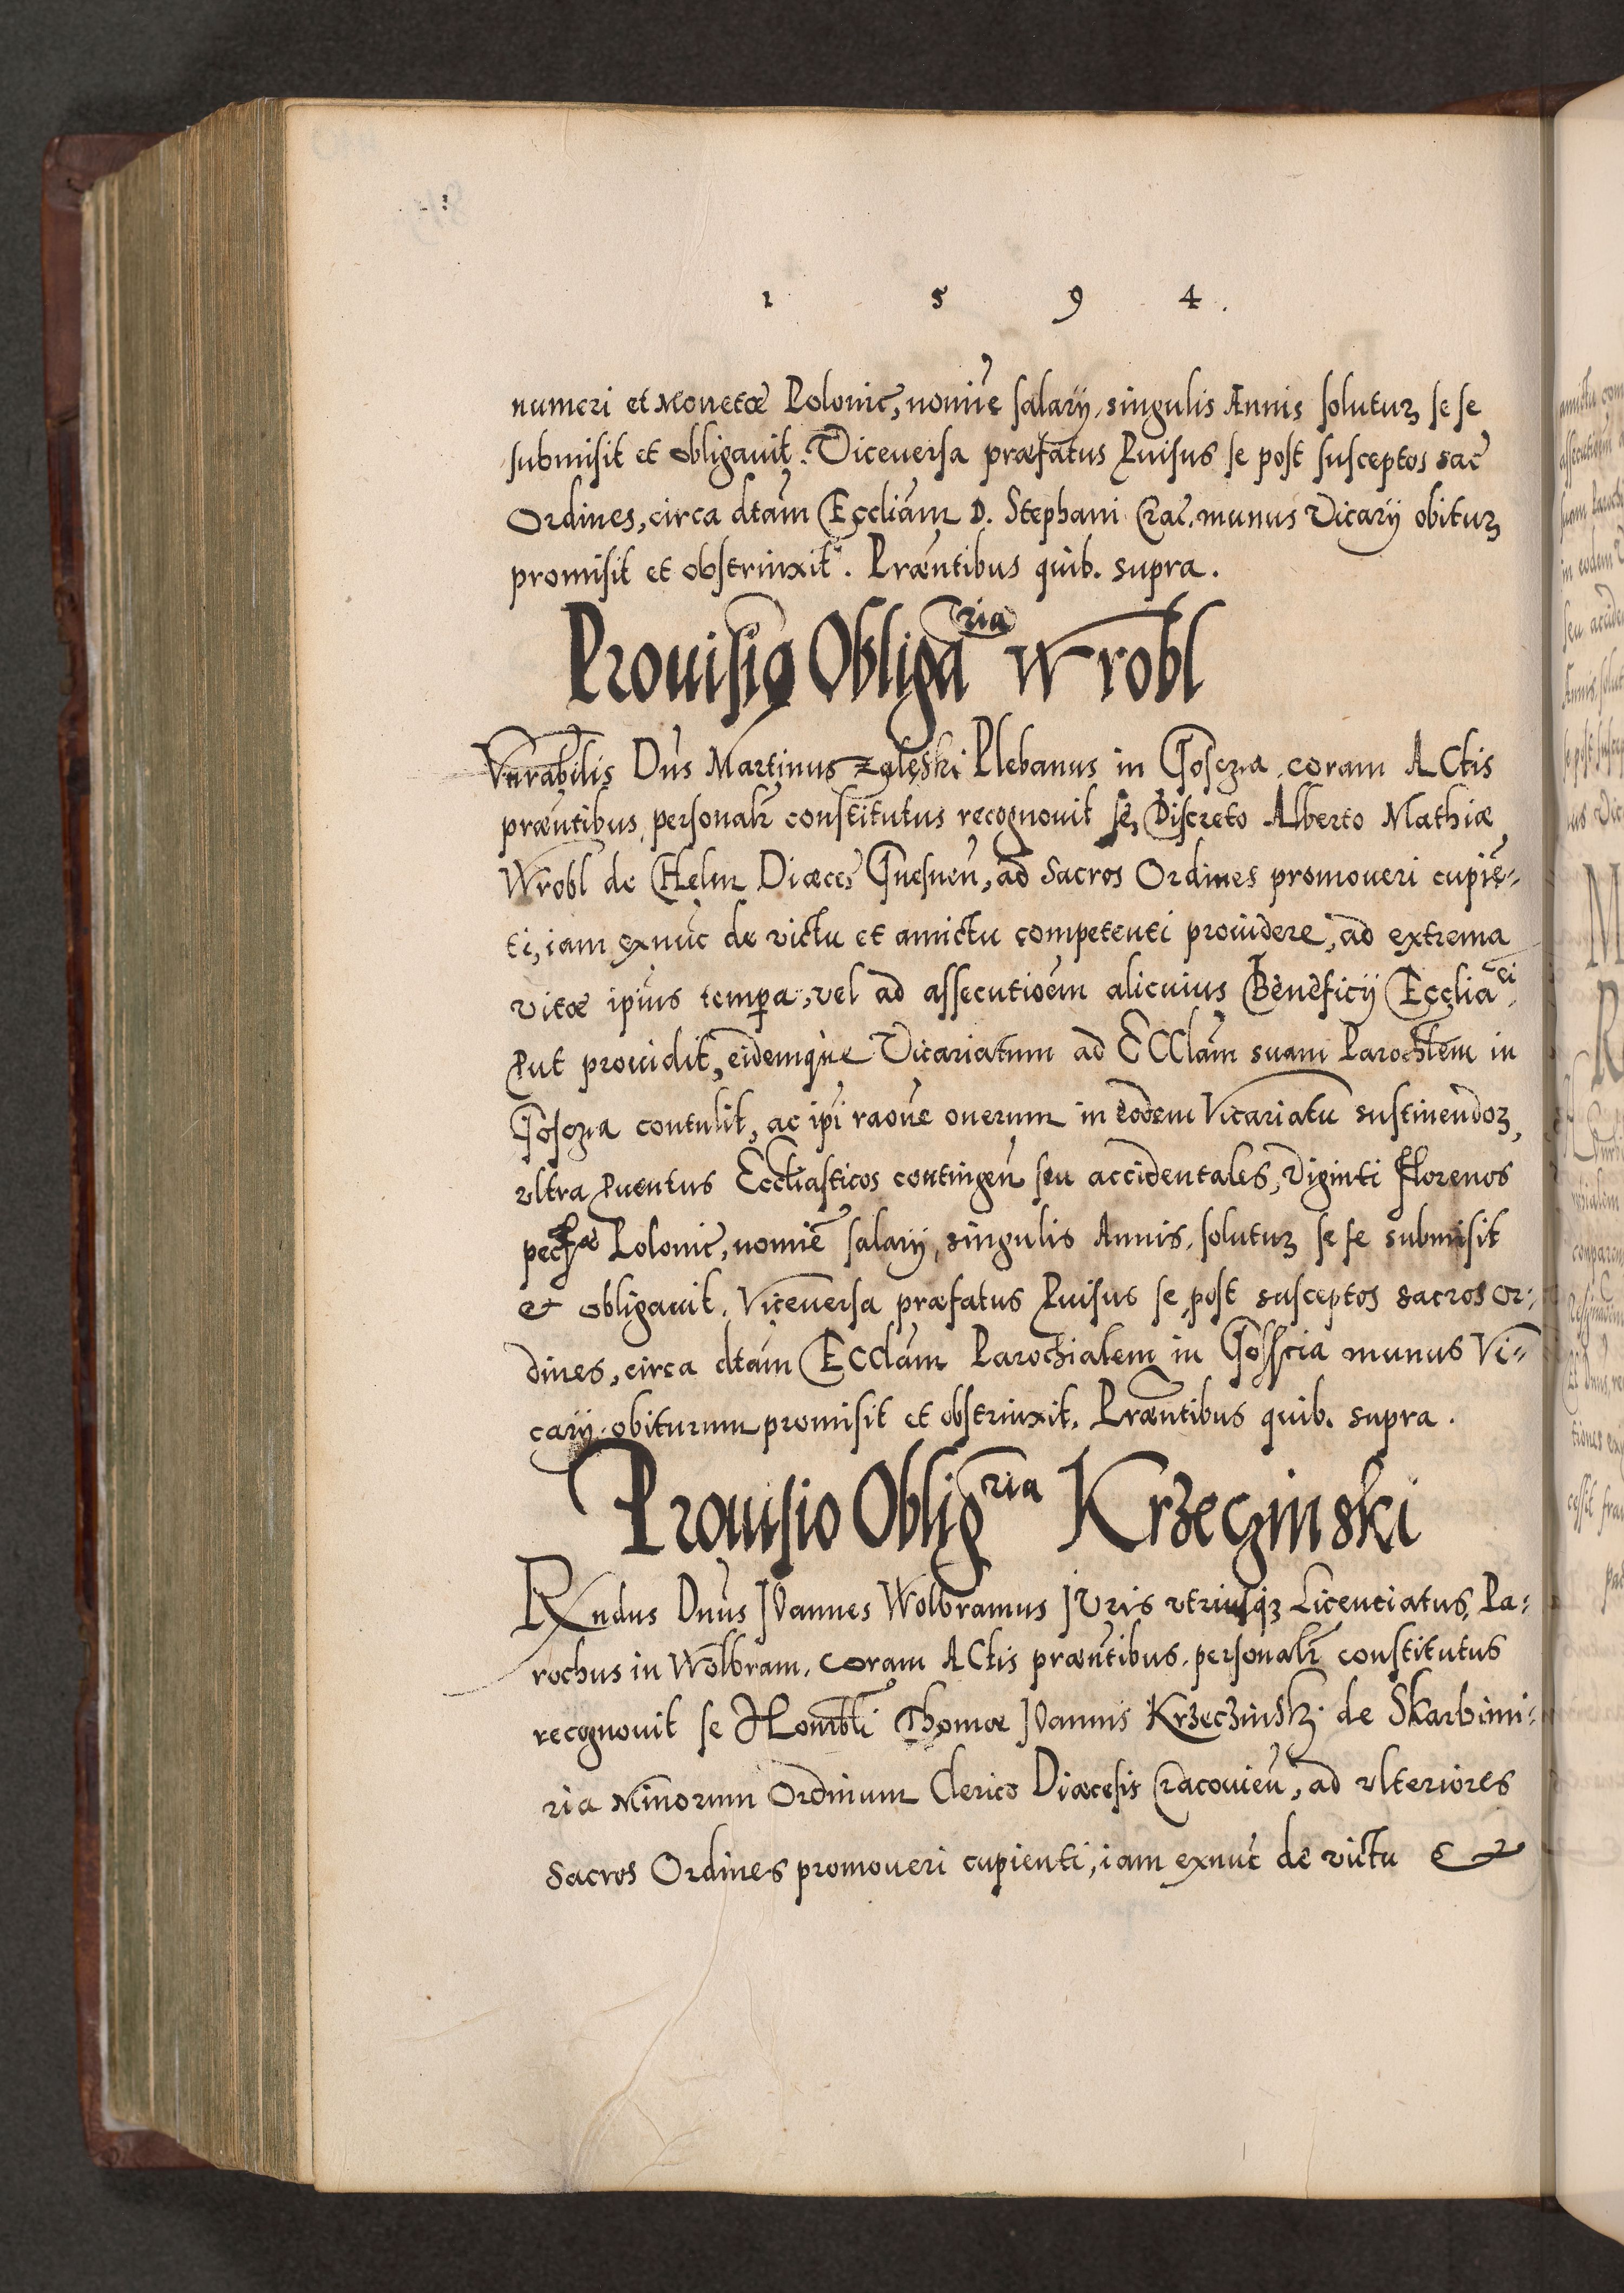 1 5 9 4.
numeri et Monetæ Polonic̃, nomĩe salarÿ, singulis Annis solutuꝝ se se
submisit et obligauit. Viceuersa præfatus Ꝓuisus se post susceptos sac̃
Ordines, circa dtãm Eccliãm D. Stephani Crac̃. munus Vicarÿ obituꝝ
promisit et obstrinxit. Præñtibus quib. supra.
Prouisio Obliga^ria Wrobl
Vnrãbilis Dñs Martinus Zgleski Plebanus in Gosczia coram ACtis
præñtibus personalr̃ constitutus recognouit se, Discreto Alberto Mathiæ
Wrobl de Chelm Diæces̃ Gnesneñ, ad Sacros Ordines promoueri cupiẽ=
ti, iam exnũc de victu et amictu competenti prouidere, ad extrema
vitæ ipĩus tempꝑa, vel ad assecutioẽm alicuius Beneficÿ Ecclia^ci.
Ꝓut prouidit, eidemq̃ue Vicariatum ad ECClãm suam Parochlẽm in
Gosczia contulit, ac ipĩ raoñe onerum in eodem Vicariatu sustinendoꝝ,
vltra Ꝓuentus Eccliãsticos contingeñ seu accidentales, Viginti florenos
pecꝭæ Polonic̃, nomiẽ salarÿ, singulis Annis, solutuꝝ se se submisit
et obligauit. Viceuersa præfatus Ꝓuisus se post susceptos sacros or=
dines, circa dtãm ECClãm Parochialem in Gosscia munus Vi=
carÿ obiturum promisit et obstrinxit. Præñtibus quib. supra.
Prouisio Oblig^ria Krzeczinski
Rñdus Dñus JOannes Wolbramus JVris vtriusqꝫ Licenciatus, Pa=
rochus in Wolbram, coram ACtis præñtibus personalr̃ constitutus
recognouit se Honrãbli Thomæ JOannis Krzeczinskꝫ de Skarbimi=
ria Minorum Ordinum Clerico Diæcesis Cracouieñ, ad vlteriores
Sacros Ordines promoueri cupienti, iam exnũc de victu et